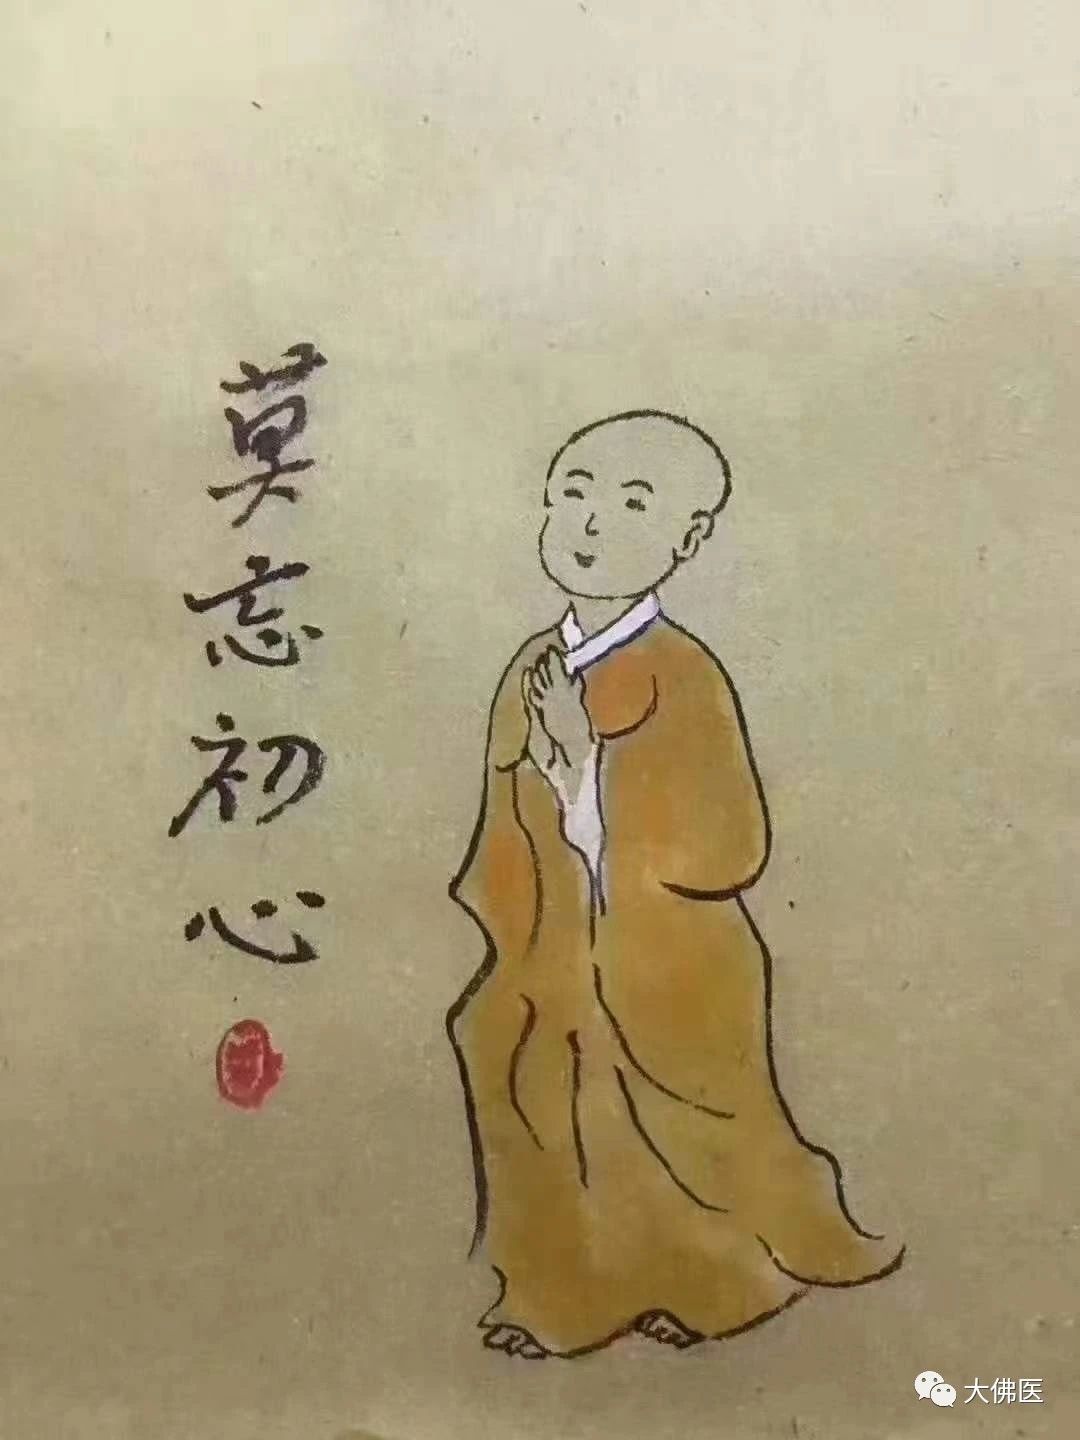 莫忘初心
大佛医